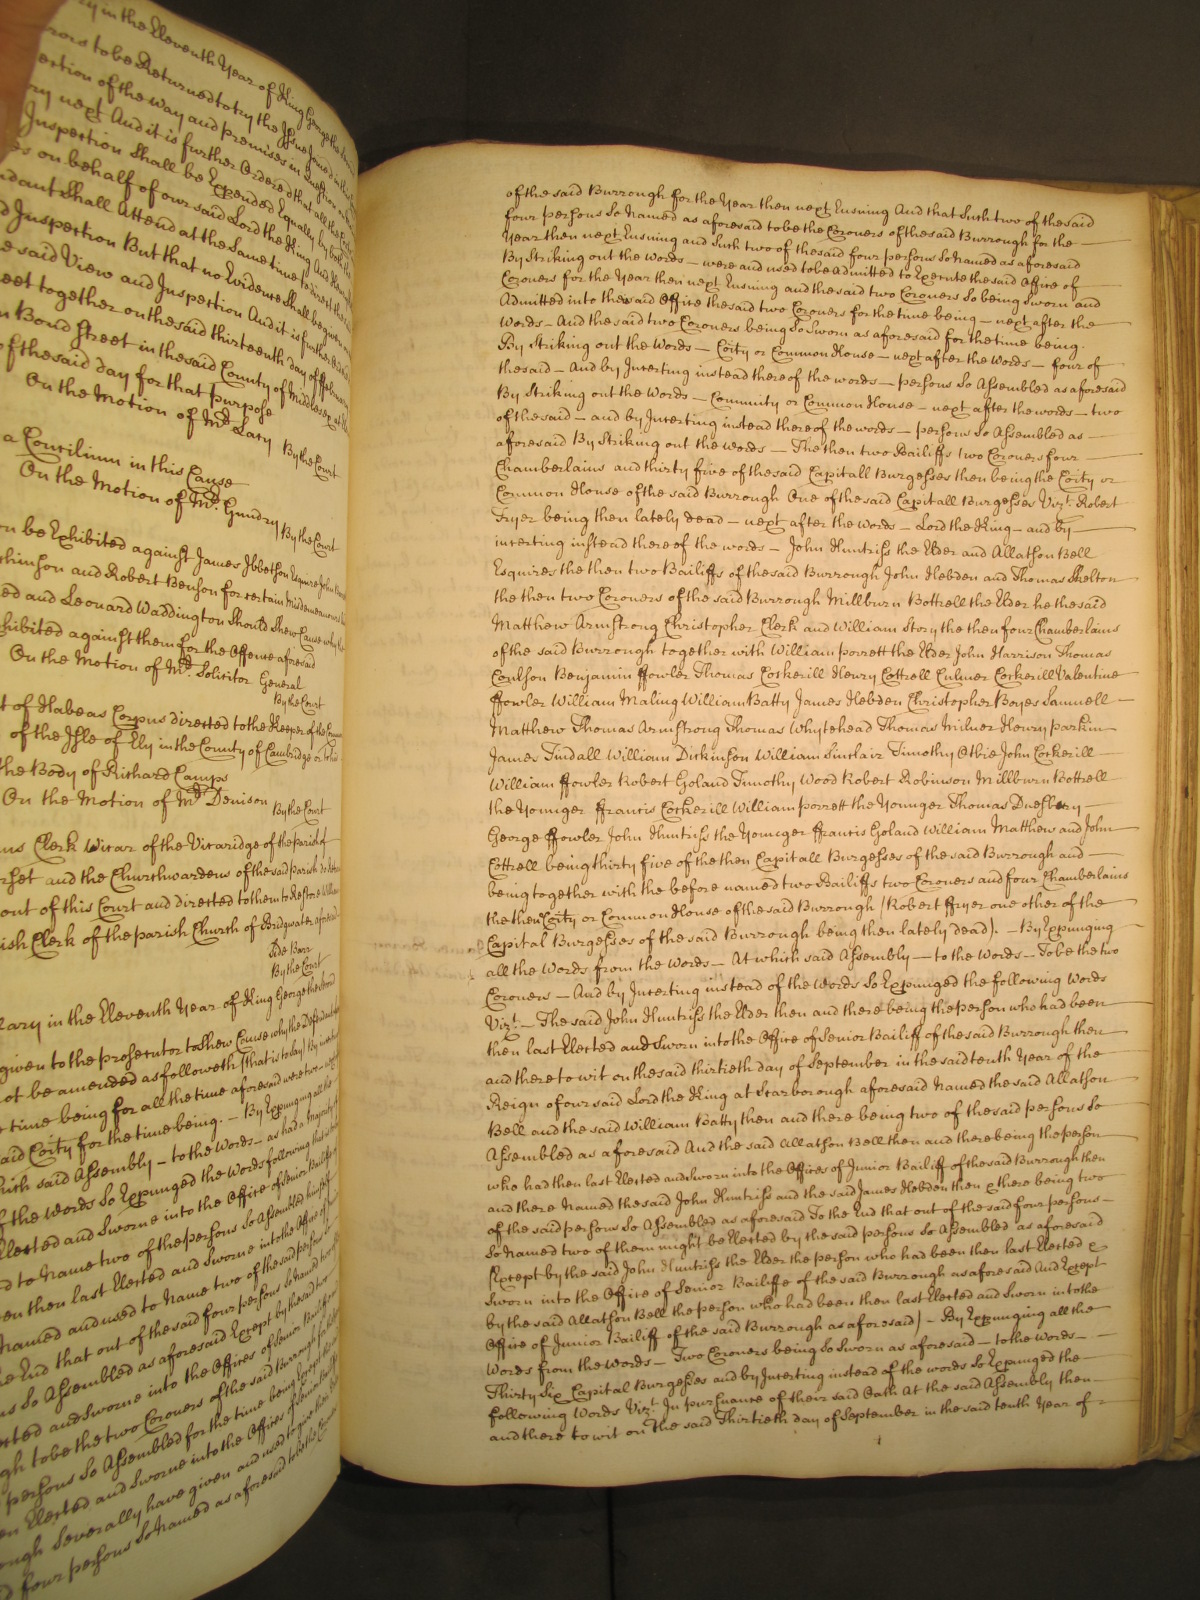 ry in the Eleventh Year of King George the
to be Returned to try the Issue Joined in
of the way and premises in Question
next And it is further Ordered that all the
Inspection shall be Expended Equally by both the
on behalf of our said Lord the King And
shall Attend at the Same time to direct the
Inspection But that no Evidence shall begiven
said View and Inspection And it is further
together on the said thirteenth day of
Bond Street in the said County of Middlesex at
of the said day for that purpose
On the Motion of Mr. Lacy By the Court
a Concilium in this Cause
On the Motion of Mr. Gundry By the Court
be Exhibited against James Ibbetson Esquire John
and Robert Benson for certain Misdemeanours
and Leonard Waddington Should Shew Cause why
against them for the Offence aforesaid
On the Motion of Mr. Solicitor General
By the Court
of Habeas Corpus directed to the Keeper of the
of the Isle of Ely in the County of Cambridge or
the Body of Richard Camps
On the Motion of Mr. Denison By the Court
Clerk Vicar of the Vicaridge of the parish of
and the Churchwardens of the said parish
out of this Court and directed to them to Restore
Clerk of the parish Church of Bridgwater aforesaid
Side Barr
By the Court
in the Eleventh Year of King George the Second
given to the prosecutor to shew Cause why the
not be amended as followeth (that is to say) By
time being for all the time aforesaid were two
said Coity for the time being. – By Expunging all the
which said Assembly – to the Words – as had
of the words So Expunged the Words following
Elected and Sworne into the Office of Senior Bailiff
to Name two of the persons So Assembled
then last Elected and Sworne into the Office of
Named and used to Name two of the said persons
End that out of the said four persons So named
So Assembled as aforesaid Except by the said two
and Sworne into the Offices of Senior Bailiff
to be the two Coroners of the said Burrough
persons So Assembled for the time being
Elected and Sworne into the Offices of
Severally have given and used to
four persons So Named as aforesaid to be the
of the said Burrough for the Year then next Ensuing And that Such two of the said
four persons So Named as aforesaid to be the Coroners of the said Burrough for the
Year then next Ensuing and Such two of the said four persons So Named as aforesaid
By Striking out the Words – were and used to be admitted to Execute the said Office of
Coroners for the Year then next Ensuing and the said two Coroners So being Sworn and
Admitted into the said Office the said two Coroners for the time being – next after the
Words – And the said two Coroners being So Sworn as aforesaid for the time being.
By Striking out the Words – Coity or Common House – next after the Words – four of
the said – And by Inserting instead thereof the words – persons So Assembled as aforesaid
By Striking out the Words – Community or Common House – next after the words – two
of the said – and by Inserting instead thereof the words – persons So Assembled as –
aforesaid By Striking out the words – The then two Bailiffs two Coroners four –
Chamberlains and thirty five of the said Capitall Burgesses then being the Coity or
Common House of the said Burrough One of the said Capitall Burgesses Vizt. Robert
Fryer being then lately dead – next after the Words – Lord the King – and by –
inserting instead thereof the words – John Huntriss the Elder and Allatson Bell
Esquires the then two Bailiffs of the said Burrough John Hebden and Thomas Skelton
the then two Coroners of the said Burrough Millburn Bottrell the Elder he the said
Matthew Armstrong Christopher Clerk and William Story the then four Chamberlains
of the said Burrough together with William porrett the Elder John Harrison Thomas
Coulson Benjamin ffowler Thomas Cockerill Henry Cottrell Culmer Cockerill Valentine
ffowler William Maling William Batty James Hebden Christopher Boyes Samuell –
Matthew Thomas Armstrong Thomas Whytehead Thomas Milner Henry parkin
James Tindall William Dickinson William Sinclair Timothy Otbie John Cockerill –
William ffowler Robert Goland Timothy Wood Robert Robinson Millburn Bottrell
the Younger ffrancis Cockerill William porrett the Younger Thomas Duesbery –
George ffowler John Huntriss the Younger ffrancis Goland William Matthew and John
Cottrell being thirty five of the then Capitall Burgesses of the said Burrough and –
being together with the before named two Bailiffs two Coroners and four Chamberlains
the then Coity or Common House of the said Burrough (Robert ffryer one other of the
Capital Burgesses of the said Burrough being then lately dead). – By Expunging
all the Words from the Words – At which said Assembly – to the Words – To be the two
Coroners – And by Inserting instead of the Words So Expunged the following Words
Vizt. – The said John Huntriss the Elder then and there being the person who had been
then last Elected and Sworn into the Office of Senior Bailiff of the said Burrough then
and there to wit on the said thirtieth day of September in the said tenth Year of the
Reign of our said Lord the King at Scarborough aforesaid Named the said Allatson
Bell and the said William Batty then and there being two of the said persons So
Assembled as aforesaid And the said Allatson Bell then and there being the person
who had then last Elected and Sworn into the Offices of Junior Bailiff of the said Burrough then
and there Named the said John Huntriss and the said James Hebden then & there being two
of the said persons So Assembled as aforesaid To the End that out of the said four persons –
So Named two of them might be Elected by the said persons So Assembled as aforesaid
(Except by the said John Huntriss the Elder the person who had been then last Elected &
Sworn into the Office of Senior Bailiffe of the said Burrough as aforesaid And Except
by the said Allatson Bell the person who had been then last Elected and Sworn into the
Office of Junior Bailiff of the said Burrough as aforesaid) – By Expunging all the
Words from the Words – Two Coroners being So Sworn as aforesaid – to the Words –
Thirty Six Capital Burgesses and by Inserting instead of the words So Expunged the –
following Words Vizt. In pursuance of their said Oath At the said Assembly then –
and there to wit on the said Thirtieth day of September in the said tenth Year of